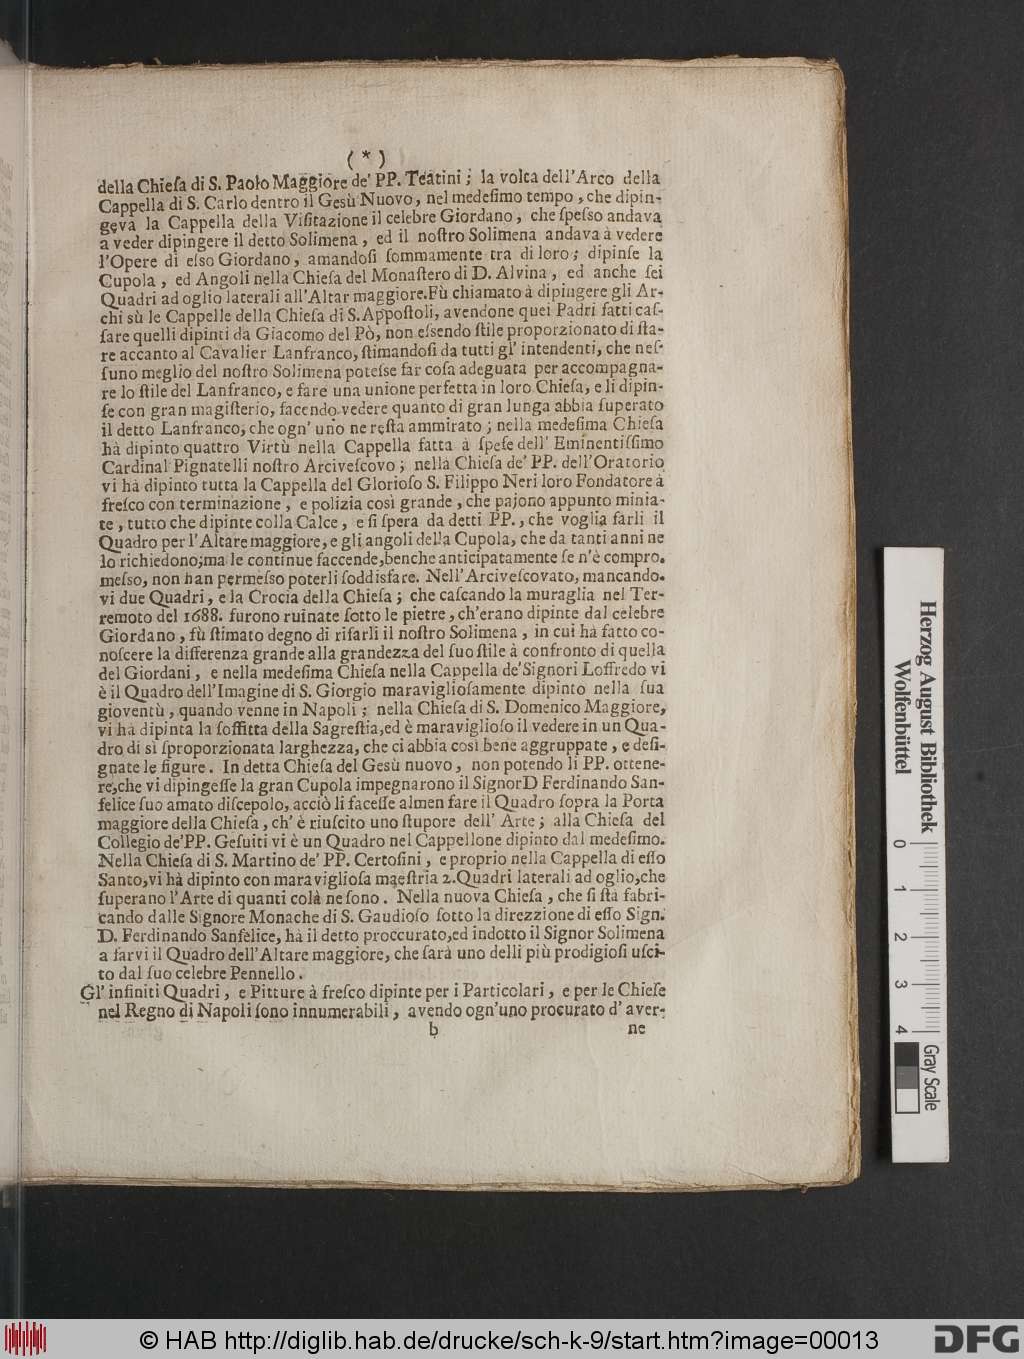 ( * )
della Chieſa di S. Paolo Maggiore de' PP. Teatini ; la volta dell'Arco della
Cappella di S. Carlo dentro il Gesù Nuovo, nel medeſimo tempo , che dipin-
geva la Cappella della Viſitazione il celebre Giordano , che ſpeſso andava
a veder dipingere il detto Solimena , ed il noſtro Solimena andava à vedere
l'Opere di eſso Giordano, amandoſi ſommamente tra di loro ; dipinſe la
Cupola , ed Angoli nella Chieſa del Monaſtero di D. Alvina , ed anche ſei
Quadri ad oglio laterali all'Altar maggiore. Fù chiamato à dipingere gli Ar-
chi sù le Cappelle della Chieſa di S. Appoſtoli, avendone quei Padri fatti caſ-
ſare quelli dipinti da Giacomo del Pò, non eſsendo ſtile proporzionato di ſta-
re accanto al Cavalier Lanfranco, ſtimandoſi da tutti gl' intendenti, che neſ-
ſuno meglio del noſtro Solimena poteſse far coſa adeguata per accompagna-
re lo ſtile del Lanfranco, e fare una unione perfetta in loro Chieſa, e li dipin-
ſe con gran magiſterio, facendo vedere quanto di gran lunga abbia ſuperato
il detto Lanfranco, che ogn' uno ne reſta ammirato ; nella medeſima Chieſa
hà dipinto quattro Virtù nella Cappella fatta à ſpeſe dell' Eminentiſſimo
Cardinal Pignatelli noſtro Arciveſcovo ; nella Chieſa de' PP. dell'Oratorio
vi hà dipinto tutta la Cappella del Glorioſo S. Filippo Neri loro Fondatore à
freſco con terminazione , e polizia così grande , che pajono appunto minia-
te , tutto che dipinte colla Calce , e ſi ſpera da detti PP. , che voglia farli il
Quadro per l'Altare maggiore, e gli angoli della Cupola, che da tanti anni ne
lo richiedono;ma le continue faccende,benche anticipatamente ſe n'è compro.
meſso, non han permeſso poterli ſoddisfare. Nell'Arciveſcovato, mancando.
vi due Quadri , e la Crocia della Chieſa ; che caſcando la muraglia nel Ter-
remoto del 1688. furono ruinate ſotto le pietre , ch'erano dipinte dal celebre
Giordano , fù ſtimato degno di rifarli il noſtro Solimena , in cui hà fatto co-
noſcere la differenza grande alla grandezza del ſuo ſtile à confronto di quella
del Giordani , e nella medeſima Chieſa nella Cappella de'Signori Loffredo vi
è il Quadro dell'Imagine di S. Giorgio maraviglioſamente dipinto nella ſua
gioventù , quando venne in Napoli ; nella Chieſa di S. Domenico Maggiore,
vi hà dipinta la ſoffitta della Sagreſtia,ed è maraviglioſo il vedere in un Qua-
dro di sì ſproporzionata larghezza, che ci abbia così bene aggruppate , e deſi-
gnate le figure . In detta Chieſa del Gesù nuovo , non potendo li PP. ottene-
re,che vi dipingeſſe la gran Cupola impegnarono il Signor D Ferdinando San-
felice ſuo amato diſcepolo, acciò li faceſſe almen fare il Quadro ſopra la Porta
maggiore della Chieſa , ch' è riuſcito uno ſtupore dell' Arte ; alla Chieſa del
Collegio de'PP. Geſuiti vi è un Quadro nel Cappellone dipinto dal medeſimo.
Nella Chieſa di S. Martino de' PP. Certoſini , e proprio nella Cappella di eſſo
Santo,vi hà dipinto con maraviglioſa maeſtria 2. Quadri laterali ad oglio,che
ſuperano l'Arte di quanti colà ne ſono . Nella nuova Chieſa , che ſi ſtà fabri-
cando dalle Signore Monache di S. Gaudioſo ſotto la direzzione di eſſo Sign.
D. Ferdinando Sanfelice, hà il detto proccurato,ed indotto il Signor Solimena
a farvi il Quadro dell'Altare maggiore, che ſarà uno delli più prodigioſi uſci-
to dal ſuo celebre Pennello .
Gl' infiniti Quadri , e Pitture à freſco dipinte per i Particolari , e per le Chieſe
nel Regno di Napoli ſono innumerabili , avendo ogn'uno procurato d' aver-
b ne
Herzog August Bibliothek
Wolfenbüttel
0 1 2 3 4
Gray Scale
© HAB http://diglib.hab.de/drucke/sch-k-9/start.htm?image=00013
DFG